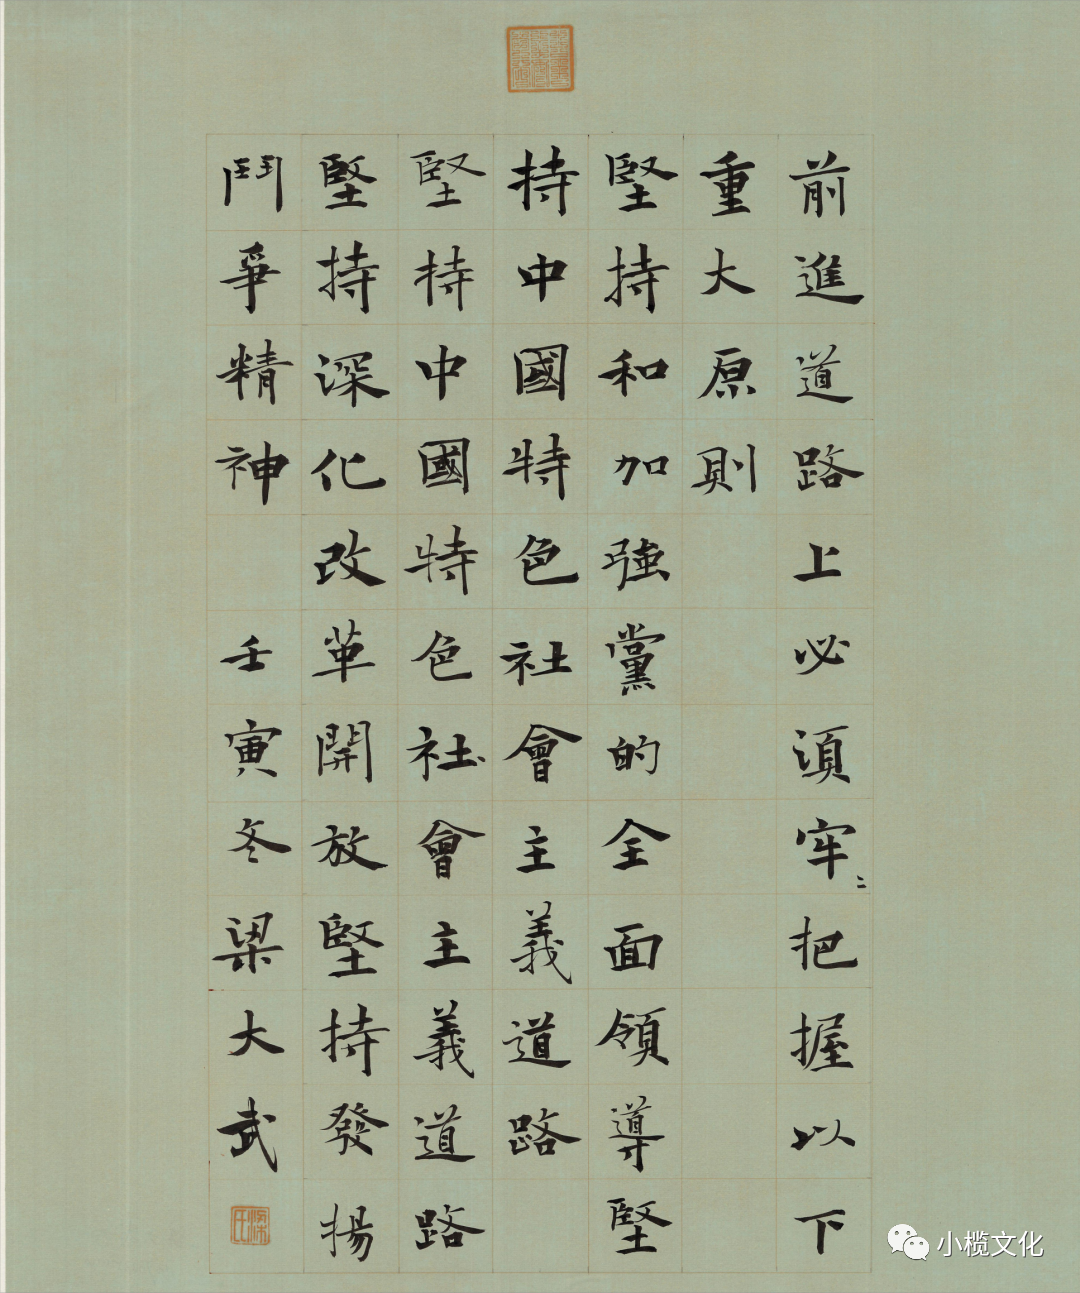 前進道路上必須牢把握以下
重大原則
堅持和加強黨的全面領導堅
持中國特色社會主義道路
堅持中國特色社會主義道路
堅持深化改革開放堅持發揚
鬥爭精神 壬寅冬梁大武
小榄文化